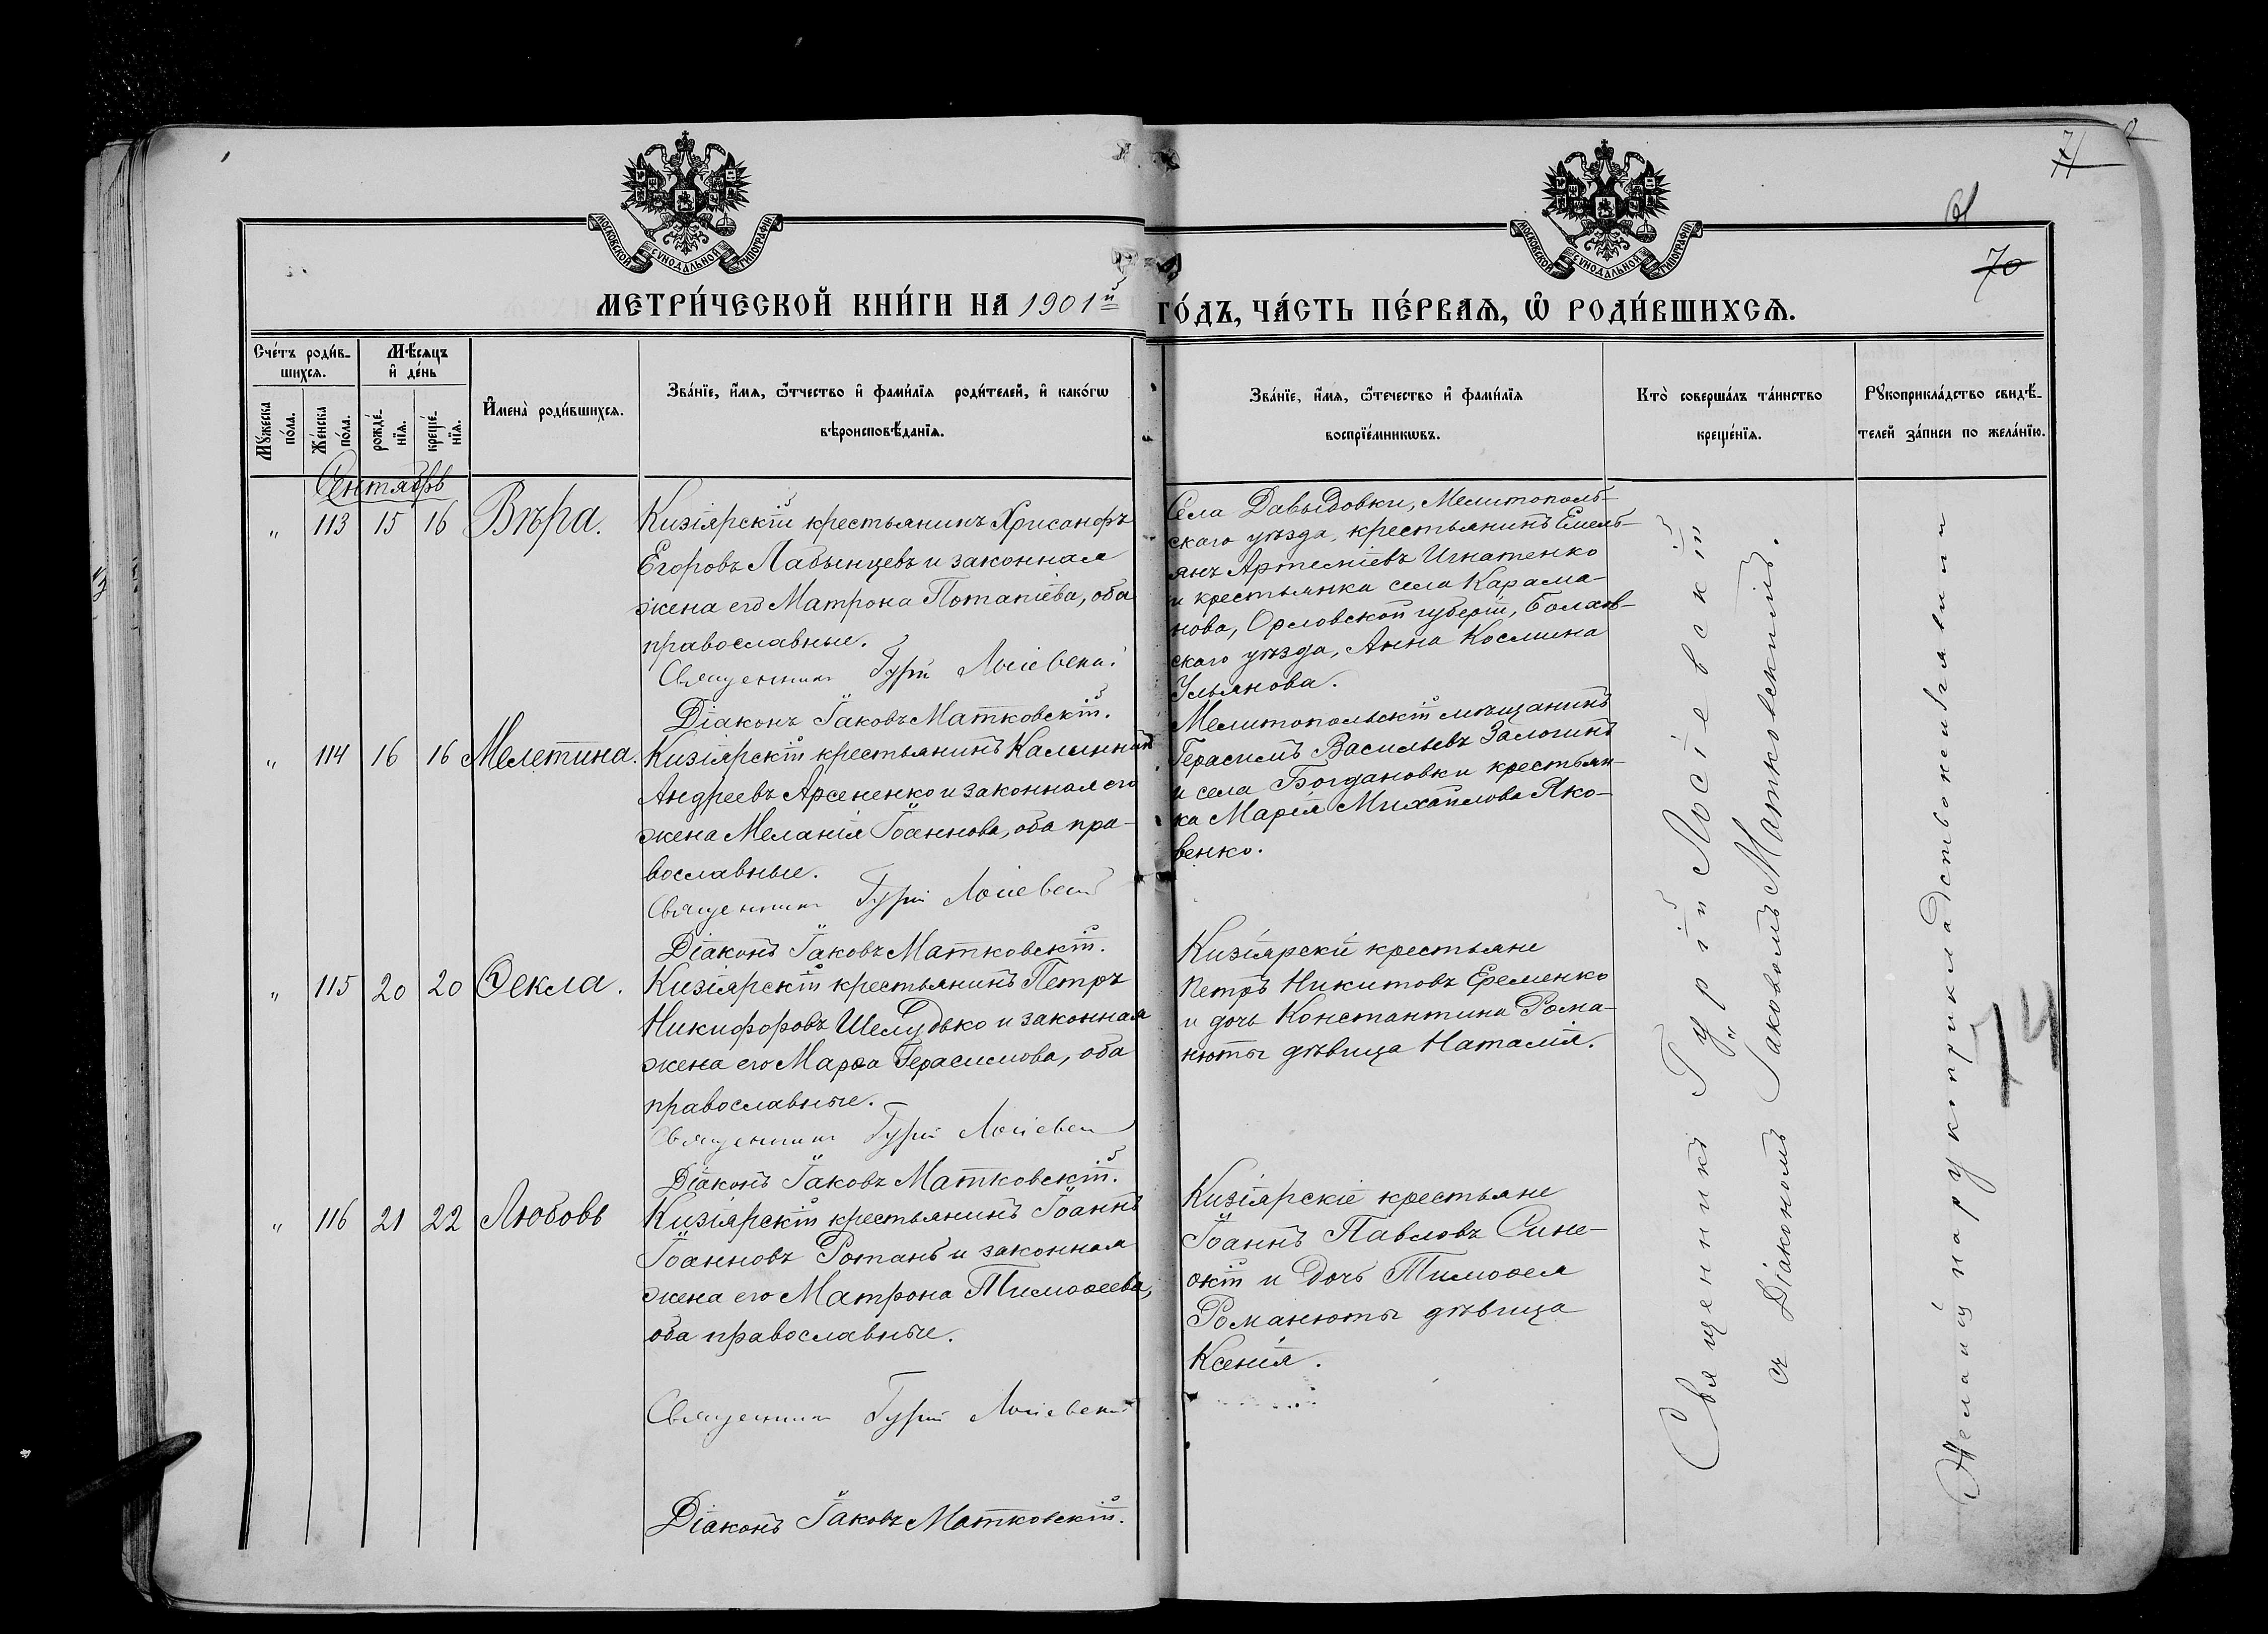 МОСКОВСКОЙ СУНОДАЛЬНОЙ ТИПОГРАФІИ
МОСКОВСКОЙ СУНОДАЛЬНОЙ ТИПОГРАФІИ
71
70
МЕТРИ́ЧЕСКОЙ КНИ́ГИ НА 1901й
ГО́ДЪ, ЧА́СТЬ ПЕ́РВАѦ, Ѡ҆ РОДИ́ВШИХСѦ.
Сче́тъ роди́в-
шихсѧ.
Мꙋжеска
по́ла.
Же́нска
по́ла.
Мѣ́сѧцъ
и҆ де́нь
рожде́-
нїѧ.
креще́-
нїѧ.
И҆мена̀ роди́вшихсѧ.
Зва́нїе, и҆́мѧ, ѻ҆́тчество и҆ фами́лїѧ роди́телей, и҆ како́гѡ
вѣроисповѣ́данїѧ.
Зва́нїе, и҆́мѧ, ѻ҆́течество и҆ фами́лїѧ
воспрїе́мникѡвъ.
Кто̀ соверша́лъ та́инство
креще́нїѧ.
Рꙋкоприкла́дство свидѣ́-
телей за́писи по жела́нїю.
Сентябрь
" 113 15 16 Вѣра.
Кизіярскій крестьянинъ Хрисанфъ
Егоровъ Лабынцевъ и законная
жена его Матрона Потапіева, оба
православные.
Священникъ Гурій Лосіевскій
Діаконъ Іаковъ Матковскій.
Села Давыдовки, Мелитополь-
скаго уѣзда, крестьянинъ Емель-
янъ Артеміевъ Игнатенко
и крестьянка села Карама-
нова, Орловской губерніи, Болхов-
скаго уѣзда, Анна Космина
Ульянова.
" 114 16 16 Мелетина.
Кизіярскій крестьянинъ Каллиникъ
Андреевъ Арсененко и законная его
жена Меланія Іоаннова, оба пра-
вославные.
Священникъ Гурій Лосіевскій
Діаконъ Іаковъ Матковскій.
Мелитопольскій мѣщанинъ
Герасимъ Васильевъ Залогинъ
и села Богдановки крестьян-
ка Марія Михайлова Яко-
венко.
" 115 20 20 Ѳекла.
Кизіярскій крестьянинъ Петръ
Никифоровъ Шелудько и законная
жена его Марѳа Герасимова, оба
православные.
Священникъ Гурій Лосіевскій
Діаконъ Іаковъ Матковскій.
Кизіярскіе крестьяне
Петръ Никитовъ Еременко
и дочь Константина Рома-
нюты дѣвица Наталія.
" 116 21 22 Любовь
Кизіярскій крестьянинъ Іоаннъ
Іоанновъ Ротань и законная
жена его Матрона Тимоѳеева,
оба православные.
Священникъ Гурій Лосіевскій
Діаконъ Іаковъ Матковскій.
Кизіярскіе крестьяне
Іоаннъ Павловъ Сине-
окій и дочь Тимоѳея
Романюты дѣвица
Ксенія.
Священникъ Гурій Лосіевскій
съ Діакономъ Іаковомъ Матковскимъ.
74